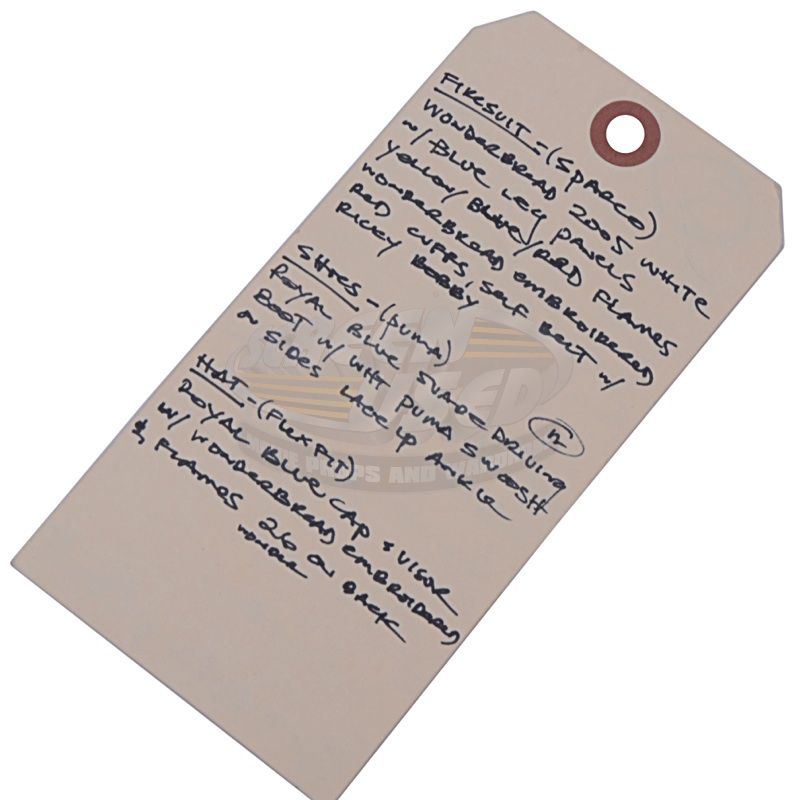 FIRESUIT - (SPARCO)
WONDERBREAD 2005 WHITE
w/ BLUE LEG PANELS
YELLOW/BLUE/RED FLAMES
WONDERBREAD EMBROIDERED
RED CUFFS, SELF BELT w/
RICKY BOBBY
SHOES - (PUMA)
ROYAL BLUE SUADE DRIVING
BOOT w/ WHT PUMA SWOOSH
SIDES LACE UP ANKLE
HAT - (FLEXFIT)
ROYAL BLUE CAP & VISOR
W/ WONDERBREAD EMBROIDERED
& FLAMES 26 ON BACK
WONDER
12
SCREEN
USED
MOVIE PROPS AND WARDROBE